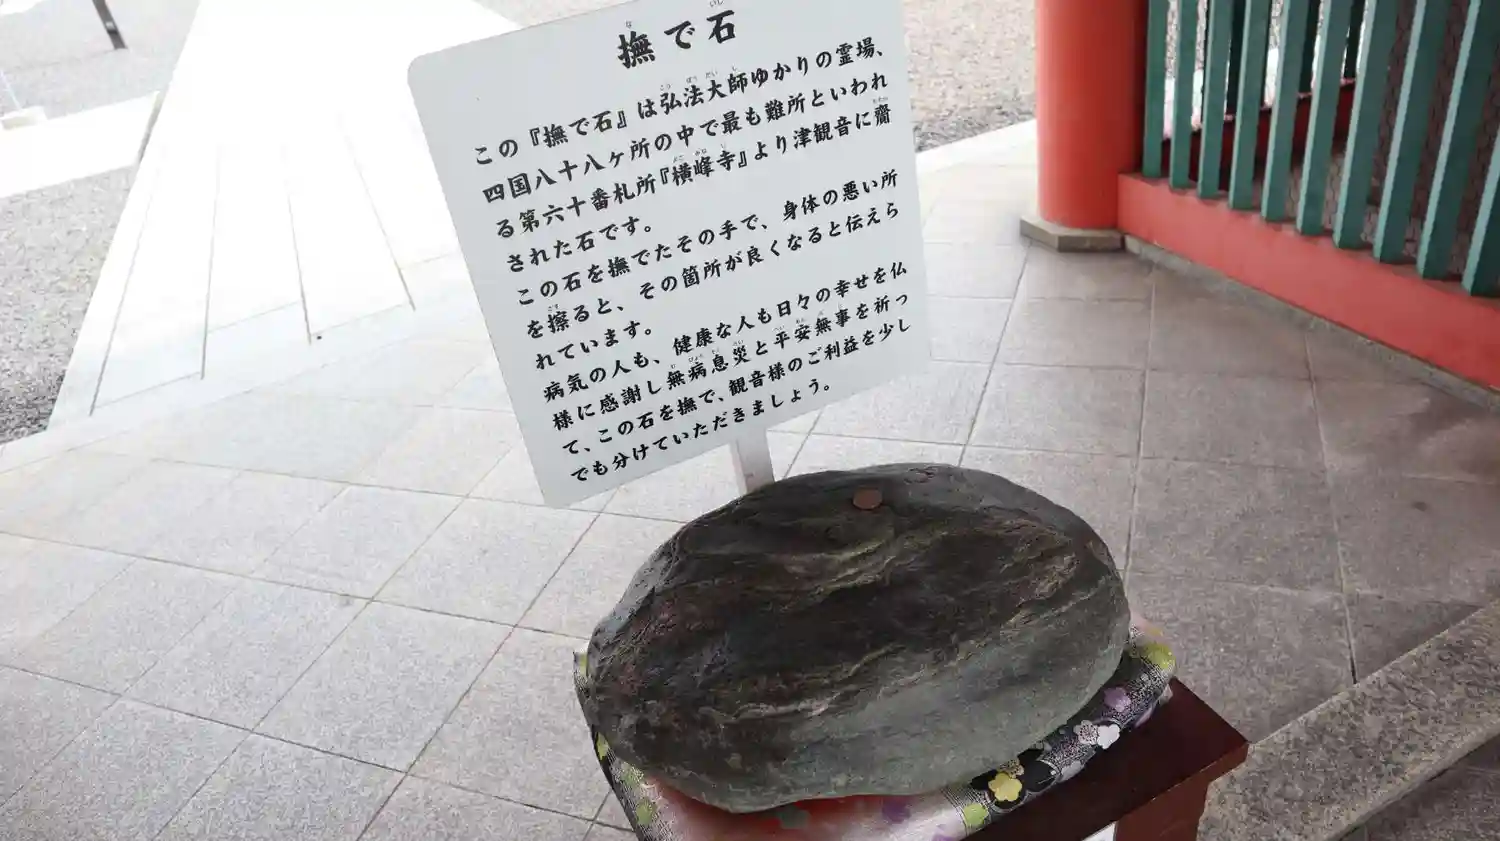 撫で石
この『撫で石』は弘法大師ゆかりの霊場、
四国八十八ヶ所の中で最も難所といわれ
る第六十番札所『横峰寺』より津観音に齋
された石です。
この石を撫でたその手で、身体の悪い所
を擦ると、その箇所が良くなると伝えら
れています。
病気の人も、健康な人も日々の幸せを仏
様に感謝し無病息災と平安無事を祈っ
て、この石を撫で、観音様のご利益を少し
でも分けていただきましょう。